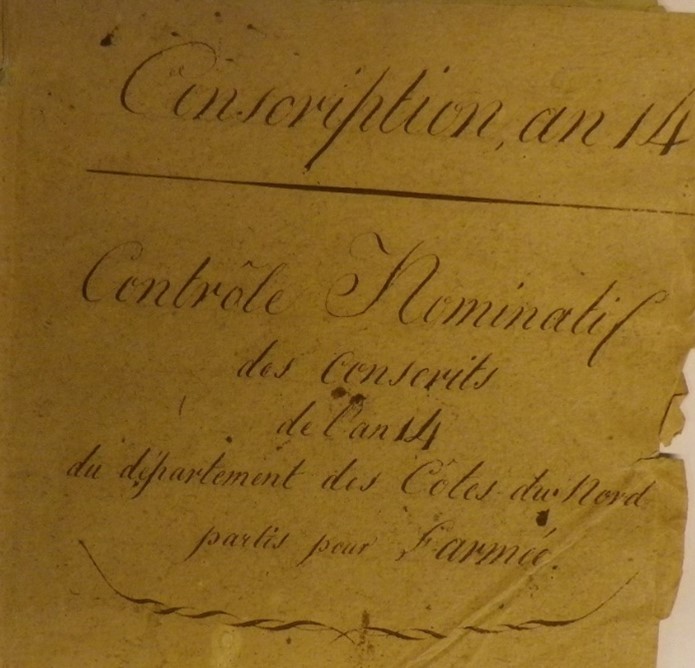 Conscription, an 14
Contrôle Nominatif
des conscrits
de l'an 14
du département des Côtes du Nord
partis pour l'armée.